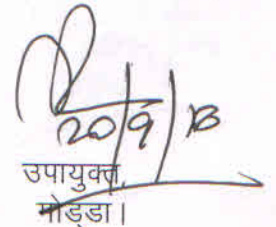 20/9/13
उपायुक्त,
गोड्डा।